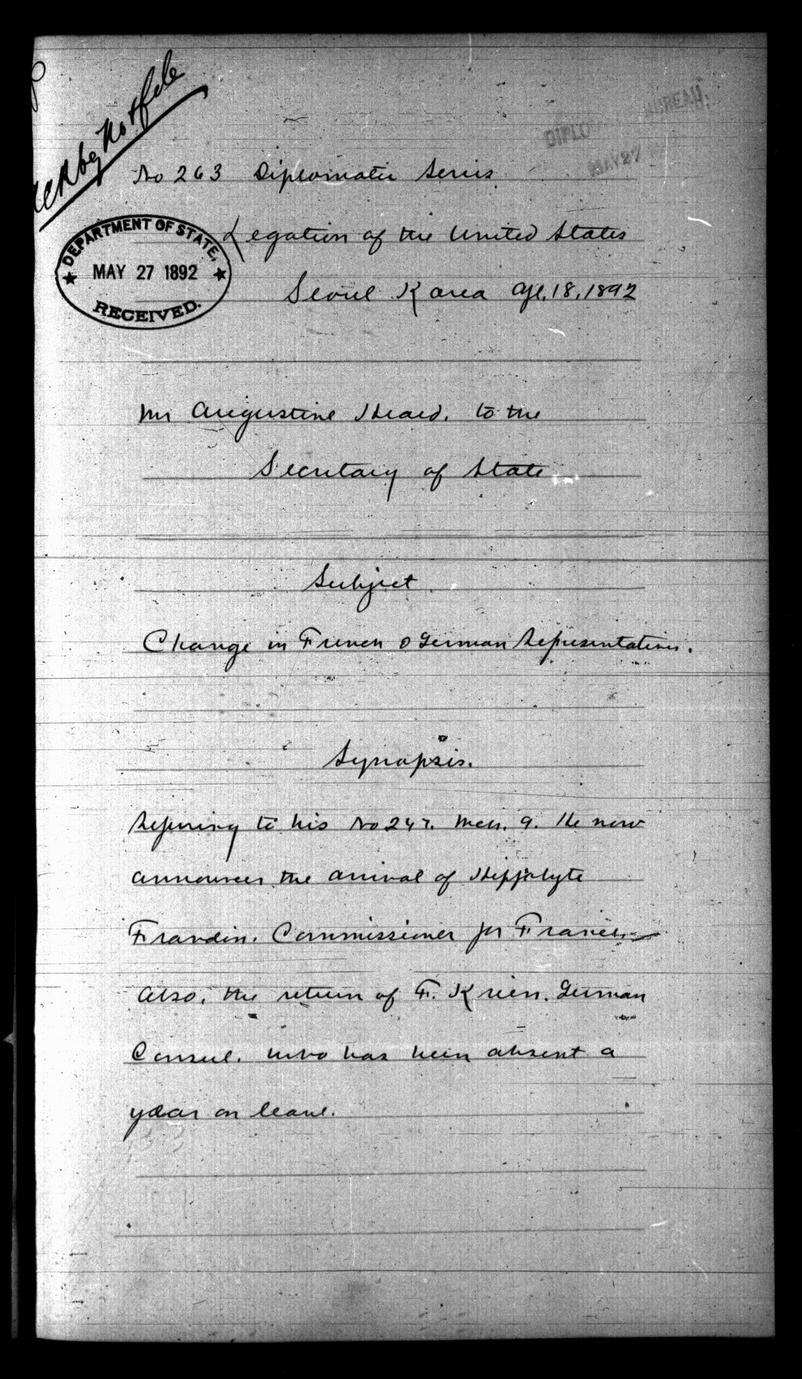 Ack by Notfile
DIPLO BUREAU,
MAY 27
No 263 Diplomatic Series
DEPARTMENT OF STATE,
MAY 27 1892
RECEIVED.
Legation of the United States
Seoul Korea Apl. 18, 1892
Mr Augustine Heard. to the
Secretary of State
Subject
Change in French & German Representatives.
Synopsis.
Refering to his No 247. Mch. 9. He now
announces the arrival of Hippolyte
Frandin. Commissioner for France.
Also, the return of F. Krien. German
Consul. who has been absent a
year on leave.